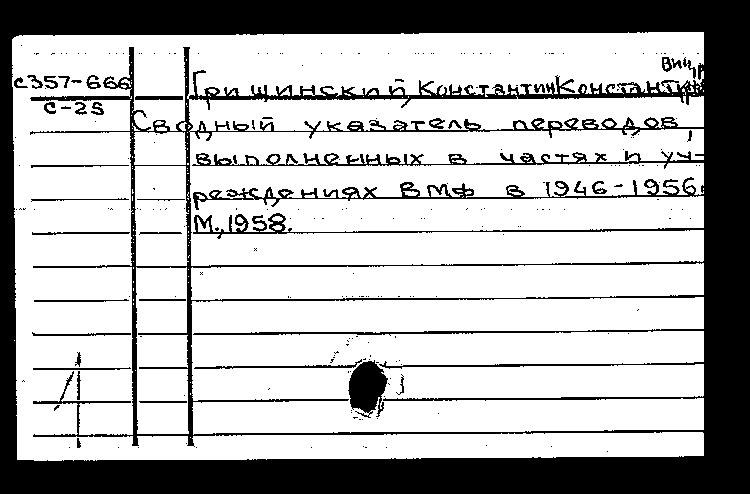 с357-666
С-25
Грищинский, Константин Константин
Сводный указатель переводов,
выполненных в частях и уч-
реждениях ВМФ в 1946-1956.
М., 1958.
1